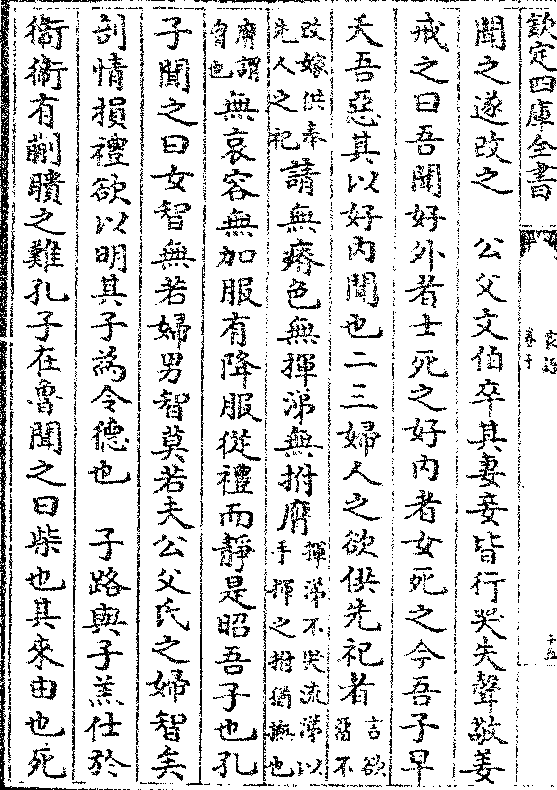 欽定四庫全書
家語
卷十
十五
聞之遂改之　公父文伯卒其妻妾皆行哭失聲敬姜
戒之曰吾聞好外者士死之好內者女死之今吾子早
夭吾惡其以好內聞也二三婦人之欲供先祀者言欲留不
改嫁供奉先人之祀請無瘠色無揮涕無拊膺揮涕不哭流涕以手揮之拊猶撫也
膺謂胷也無哀容無加服有降服從禮而靜是昭吾子也孔
子聞之曰女智無若婦男智莫若夫公父氏之婦智矣
剖情損禮欲以明其子為令德也　子路與子羔仕於
衛衛有蒯聵之難孔子在魯聞之曰柴也其來由也死